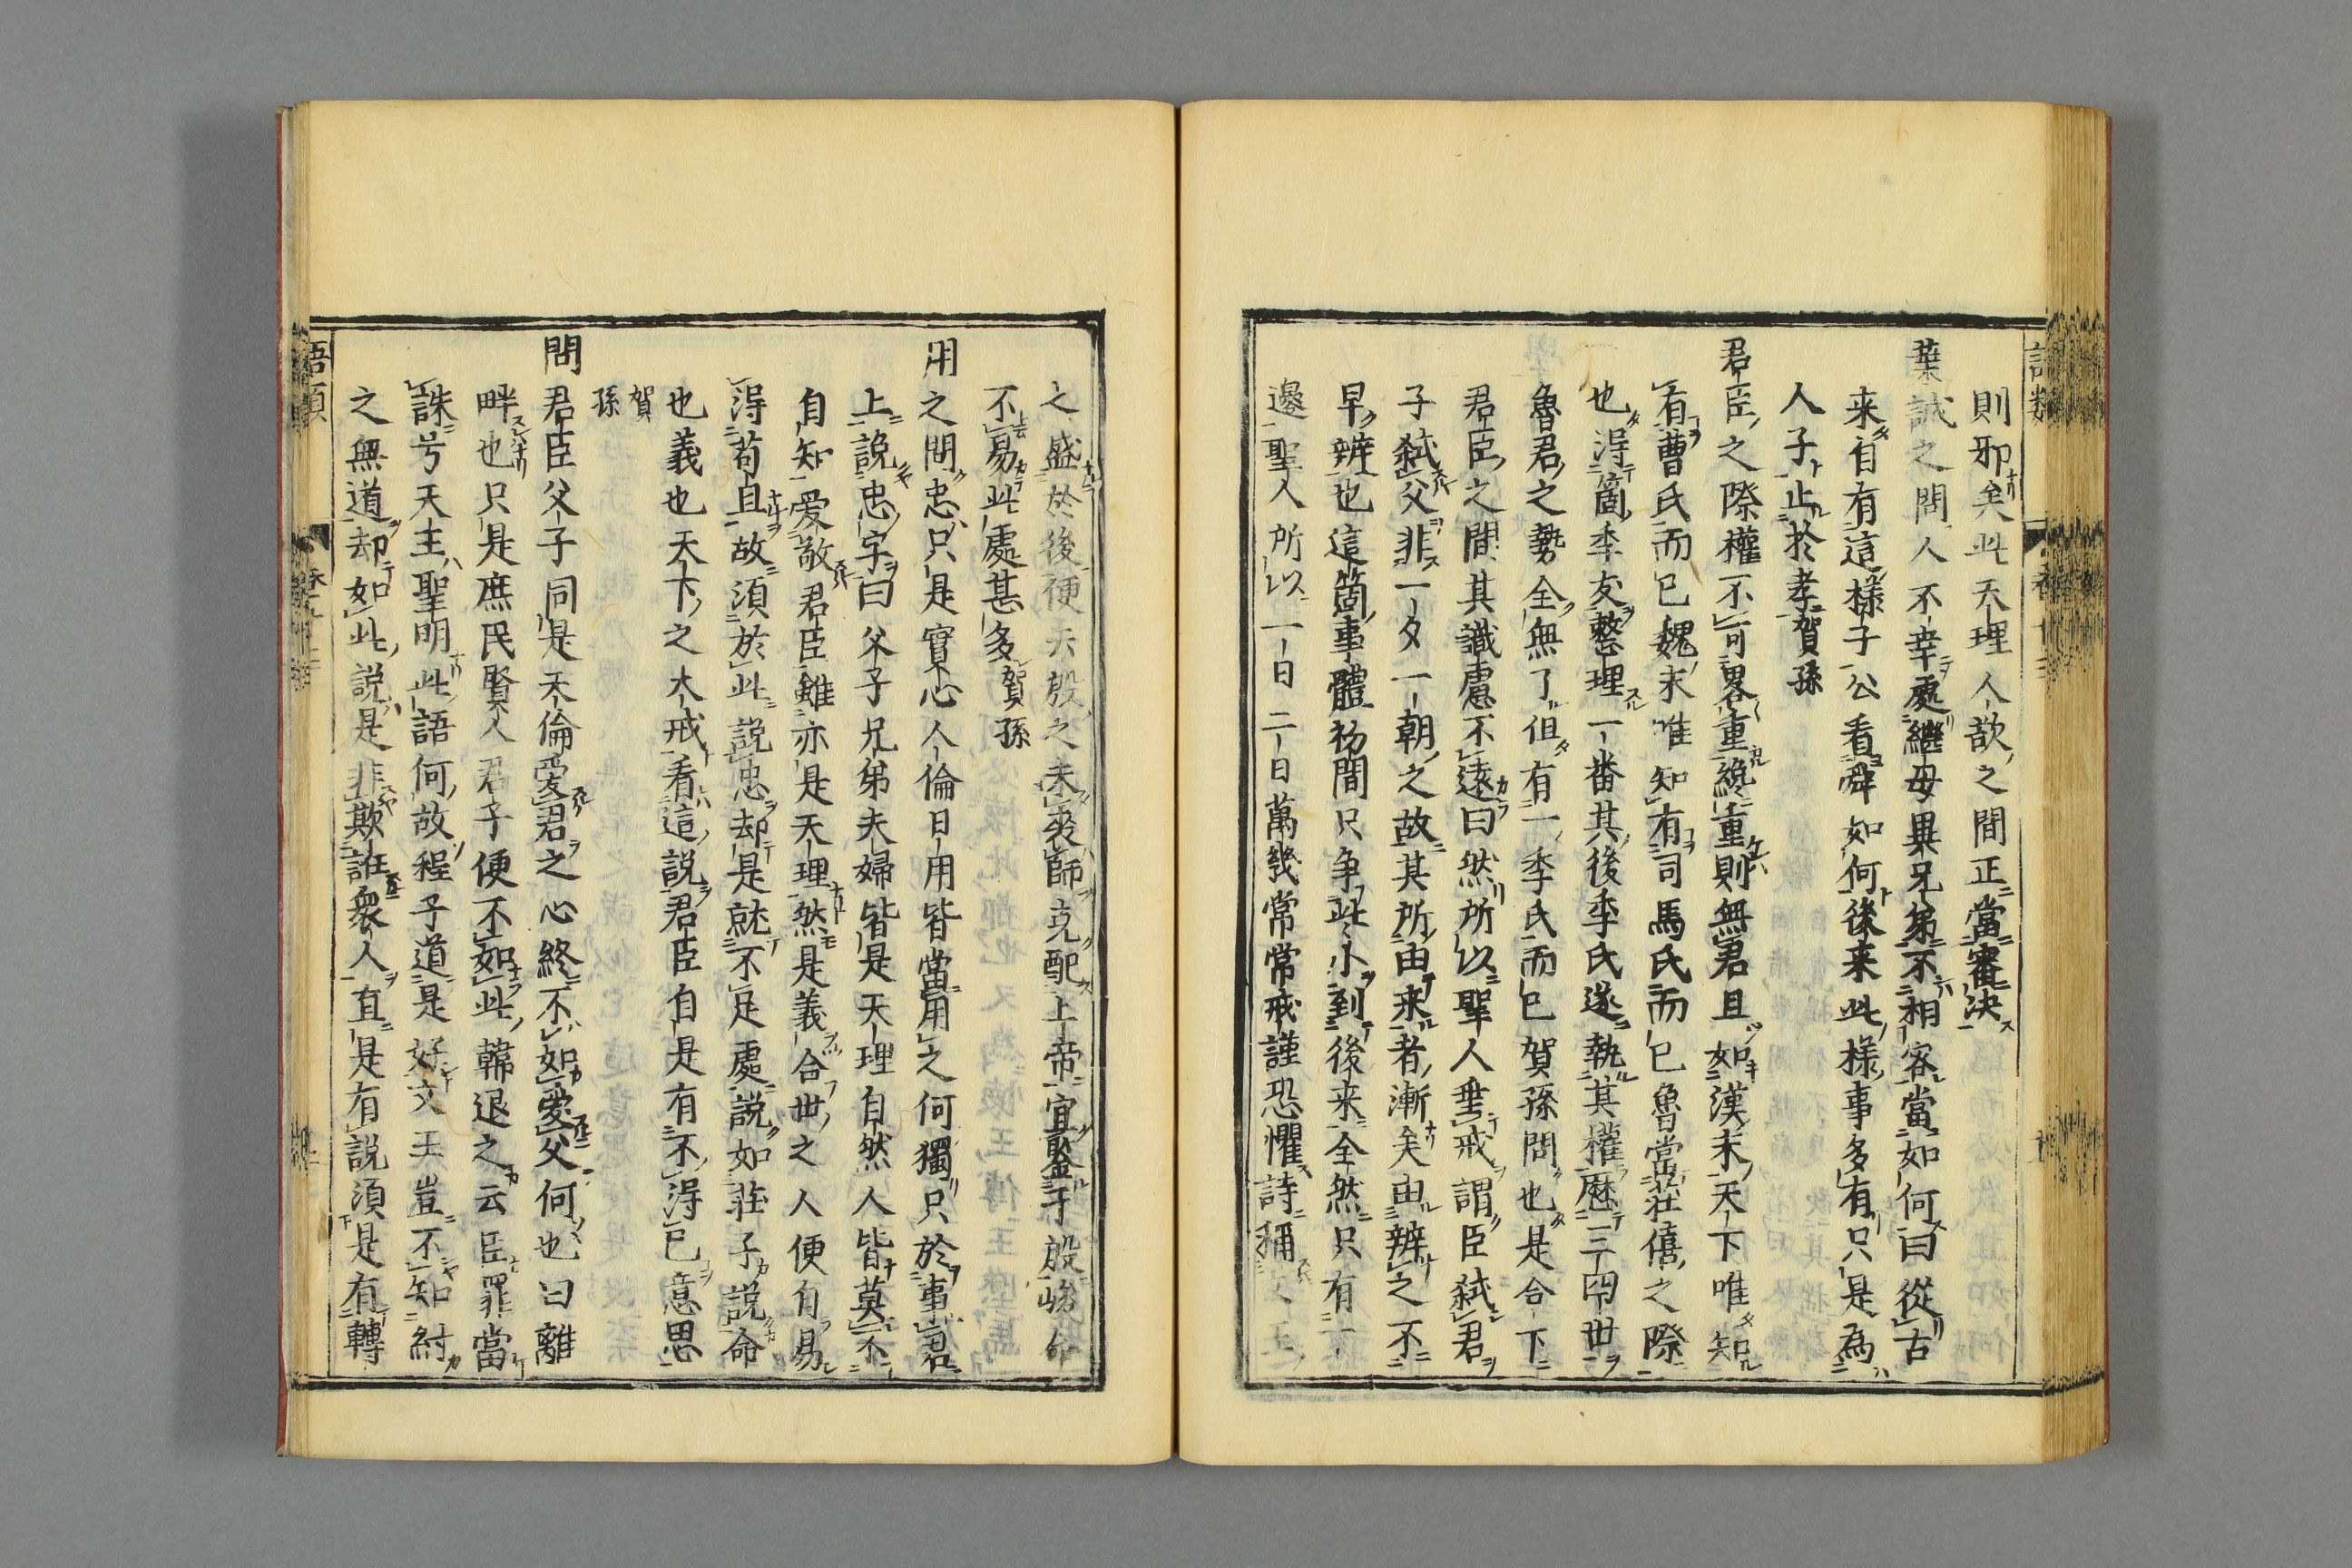 則邪矣此天理人欲之間正當審決
葉誠之問人不幸處繼母異兄弟不相容當如何曰從古
来自有這樣子公看舜如何後来此樣事多有只是為
人子止於孝賀孫
君臣之際權不可畧重纔重則無君且如漢末天下唯知
有曹氏而已魏末唯知有司馬氏而已魯當莊僖之際
也得箇季友整理一番其後季氏遂執其權歴三四世
魯君之勢全無了但有一季氏而已賀孫問也是合下
君臣之間其識慮不遠曰然所以聖人垂戒謂臣弑君
子弑父非一夕一朝之故其所由来者漸矣由辨之不
早辨也這箇事體初間只争些小到後来全然只有一
邊聖人所以一日二日萬幾常常戒謹恐懼詩稱文王
之盛於後便云殷之未喪師克配上帝宜鑒于殷峻命
不易此處甚多賀孫
用之問忠只是實心人倫日用皆當用之何獨只於事君
上説忠字曰父子兄弟夫婦皆是天理自然人皆莫不
自知愛敬君臣雖亦是天理然是義合世之人便自易
得苟且故須於此説忠却是就不足處説如莊子説命
也義也天下之大戒看這説君臣自是有不得已意思
賀孫
問君臣父子同是天倫愛君之心終不如愛父何也曰離
畔也只是庶民賢人君子便不如此韓退之云臣罪當
誅兮天主聖明此語何故程子道是好文王豈不知紂
之無道却如此説是非欺誑衆人直是有説須是有轉